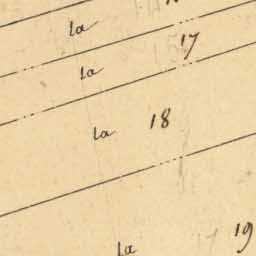 la
la 17
la 18
la 19